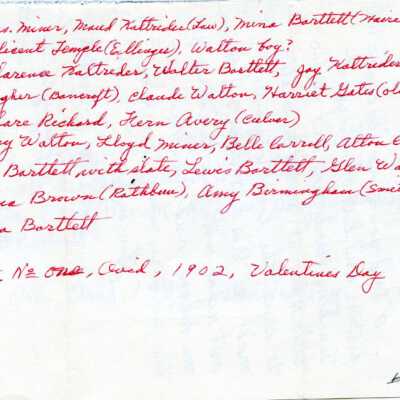 s. Miner, Maud Kattrider (Law), Mina Bartlett (Haire
licent Temple (Ellenger), Walton boy?
larence Kattrider, Walter Bartlett, Jay Kattrider
gher (Bancroft), Claude Walton, Harriet Gates (ol
lare Richard, Fern Avery (Culver)
y Walton, Lloyd Miner, Belle Carroll, Alton C
Bartlett, with slate, Lewis Bartlett, Glen Wa
na Brown (Rathbun), Amy Birmingham (Smi
a Bartlett
No one, Ovid, 1902, Valentines Day